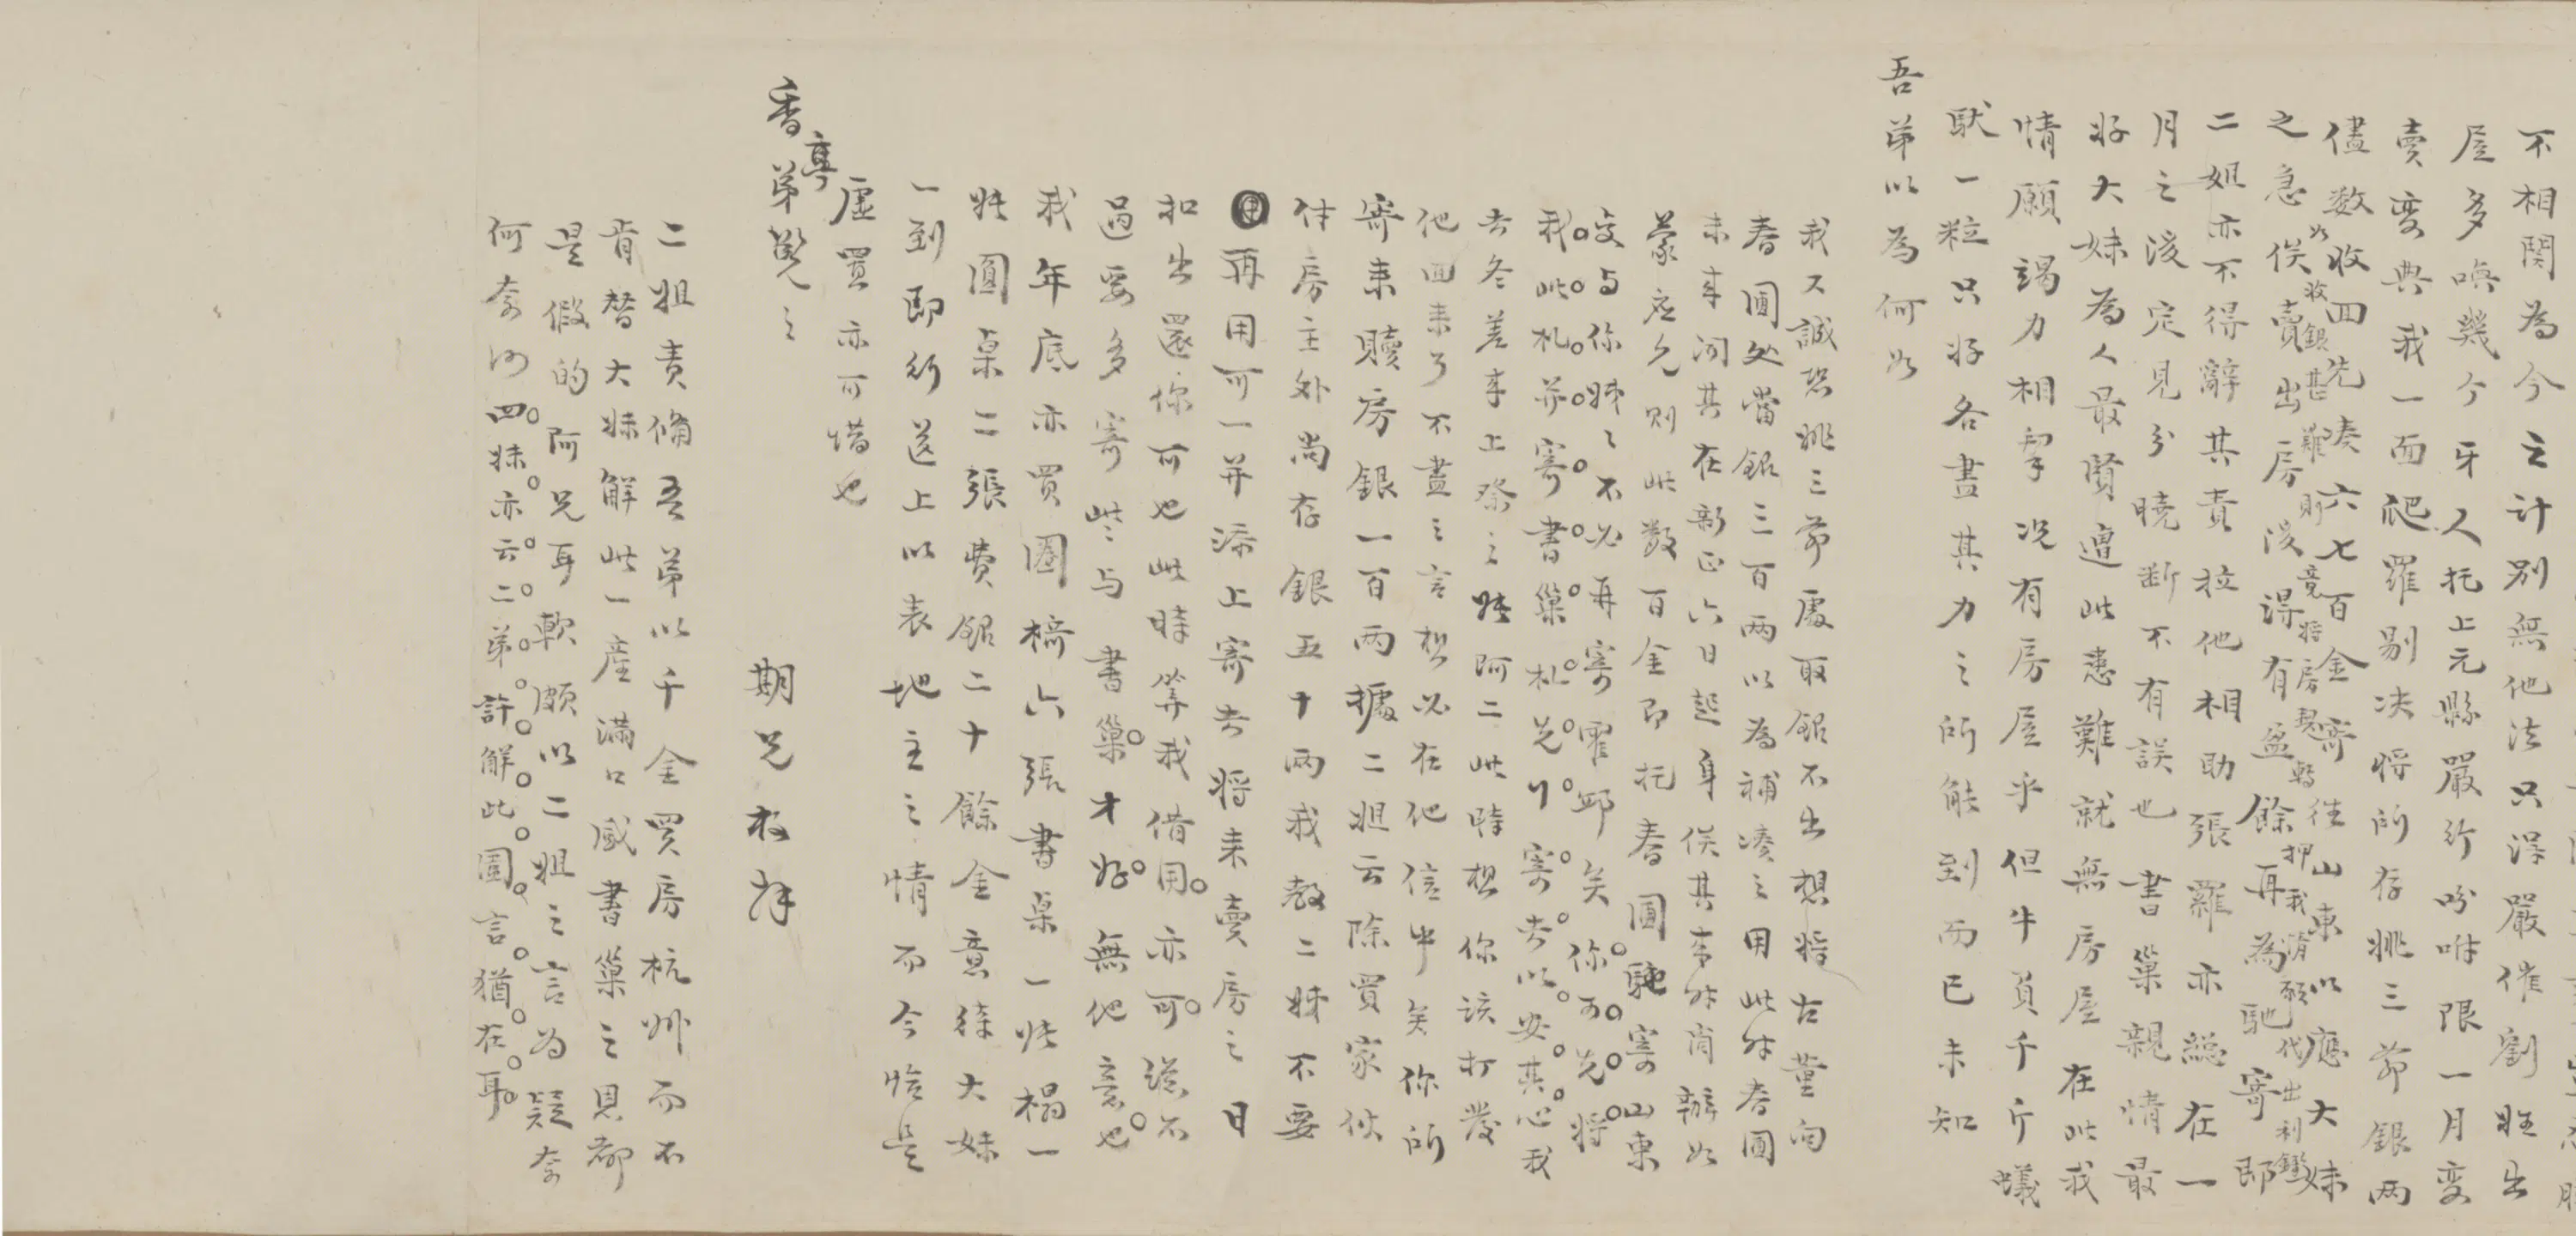 不相関為今之計別無他法只得嚴催劉旺出
屋多喚幾个牙人托上元縣嚴行吩咐限一月變
賣變典我一面爬羅剔决将所存姚三爺銀两
儘数收回先凑六七百金寄往山東以應大妹
之急俟賣出房後得有盈餘再為馳寄即
如收銀甚難則竟将房契轉押我情愿代出利錢
二姐亦不得辭其責拉他相助張羅亦總在一
月之後定見分曉断不有誤也書巢親情最
好大妹為人最賢遭此患難就無房屋在此我
情願竭力相幫况有房屋乎但牛負千斤蟻
馱一粒只好各盡其力之所能到而已未知
吾弟以為何如
我又誠恐姚三爺處取銀不出想将古董向
春圃处當銀三百两以為補凑之用此时春圃
未来闻其在新正六日起身俟其来时商辦如
蒙应允则此数百金即托春圃馳寄山東
交与你姊々不必再寄霍邱矣你可先将
我此札并寄書巢札先行寄去以安其心我
去冬差来上祭之姪阿二此時想你該打發
他回来了不盡之言想必在他信中矣你所
寄来贖房銀一百两據二姐云除買家伙
付房主外尚存銀五十两我教二妹不要
再用可一并添上寄去将来賣房之日
扣出還你可也此時算我借用亦可總不
過要多寄些与書巢才好無他意也
我年底亦買圈椅六張書桌一张榻一
张圓桌二張費銀二十餘金意待大妹
一到即行送上以表地主之情而今恰是
虛買亦可惜也
香亭弟覽之
期兄枚拜
二姐責俻吾弟以千金買房杭州而不
肯替大妹解此一産滿口感書巢之見都
是假的阿兄耳軟頗以二姐之言為疑奈
何奈何四妹亦云二弟許解此圍言猶在耳